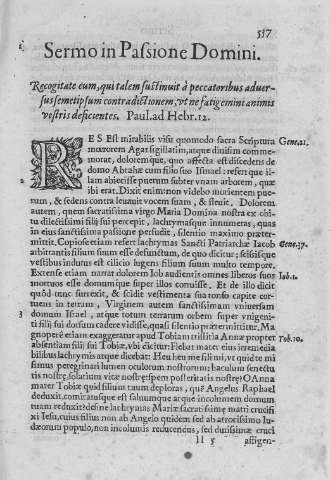 557
1
Sermo in Passione Domini.
Recogitate eum, qui talem sustinuit à peccatoribus aduer-
sus semetipsum contradictionem, vt ne fatigemini animis
vestris deficientes. Paul. ad Hebr. 12.
RES Est mirabilis visu quomodo sacra Scriptura Gene. 21.
mœrorem Agar sigillatim, atque dinisim comme-
morat, dolorem que, quo affecta est discedens de
domo Abrahæ cum filio suo Ismael: refert que il-
lam abiecisse puerum subter vnam arborem, quæ
2
ibi erat. Dixit enim, non videbo morientem pue-
rum, & sedens contra leuauit vocem suam, & fleuit. Dolorem
autem, quem sacratissima virgo Maria Domina nostra ex obi-
tu dilectissimi filij sui percepit, lachrymasque innumeras, quas
in eius sanctissima passione perfudit, silentio maximo præter-
mittit. Copiose etiam refert lachrymas Sancti Patriarchæ Iacob Gene. 37.
arbitrantis filium suum esse defunctum, de quo dicitur; scisisque
vestibus indutus est cilicio lugens filium suum multo tempore.
Extense etiam narrat dolorem Iob audientis omnes liberos suos Iob. 1.
mortuos esse domumque super illos corruisse. Et de illo dicit
quòd tunc surrexit, & scidit vestimenta sua tonso capite cor-
ruens in terram, Virginem autem sanctissimam vniuersam
3 domum Israel, atque totum terrarum orbem super vnigeni-
ti filij sui dorsum cadere vidisse, quasi silentio prætermittitur. Ma
gnopere etiam exaggeratur apud Tobiam tristitia Annæ propter Tob. 10.
absentiam filij sui Tobiæ, vbi dicitur: flebat mater eius irremedia
bilibus lachrymis atque dicebat: Heu heu me fili mi, vt quid te mi
simus peregrinari lumen oculorum nostrorum: baculum senectu
tis nostræ, solatium vitæ nostræ: spem posteritatis nostræ? O Anna
mater Tobiæ quid filium tuum deploras, quē Angelus Raphael
deduxit, comitatusque est saluumque atque incolumem domum
tuam reduxit: desine lachrymas Mariæ sacratissimæ matri crucifi
xi Iesu, cuius filius non ab Angelo quidem sed ab atrocissimo Iu-
dæorum populo, non incolumis reducendus, sed durissimæ cruci
ll 5 affigen-